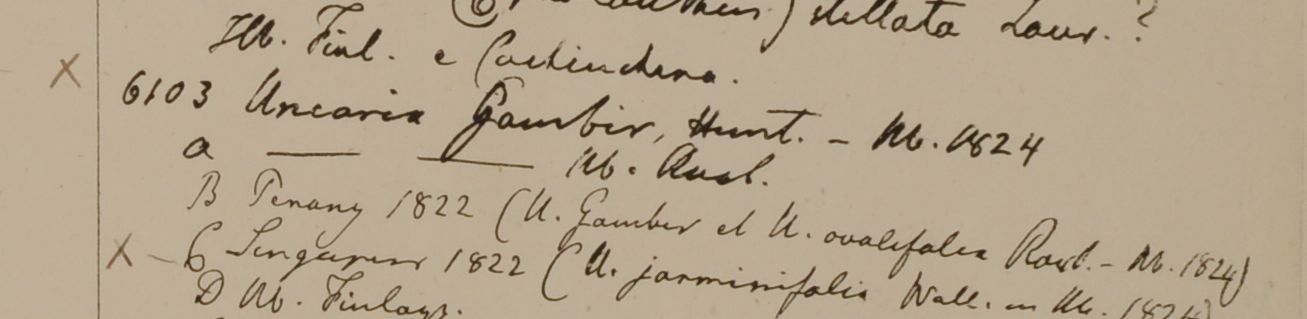 stellata Lour.?
Hb. Finl. e Cochinchina.
X
6103 Uncaria Gambir, Hunt. – Hb. 1824
a — — Hb. Roxb.
B Penang 1822 (U. Gambir et U. ovalifolia Roxb. – Hb. 1824)
X – C Singapur 1822 (U. jasminifolia Wall. in Hb. 1824)
D Hb. Finlays.